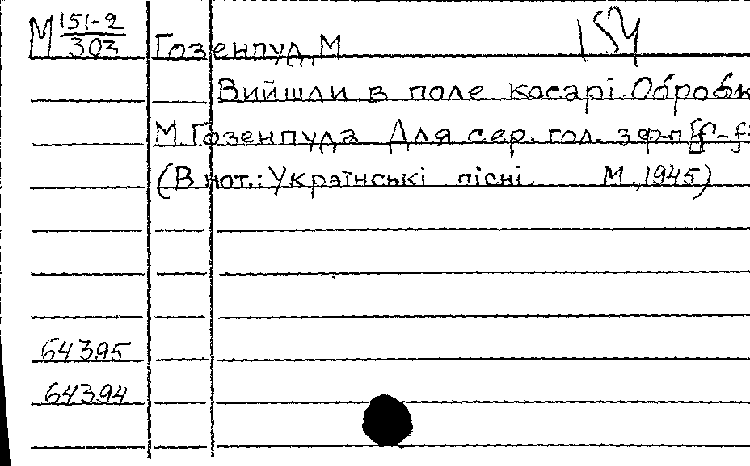 М 151-2 154
303 Гозенпуд, М
Вийшли в поле косарі. Обробк
М. Гозенпуда Для сер. гол. з ф-п
(В нот.: Українські пісні М., 1945)
64395
64394